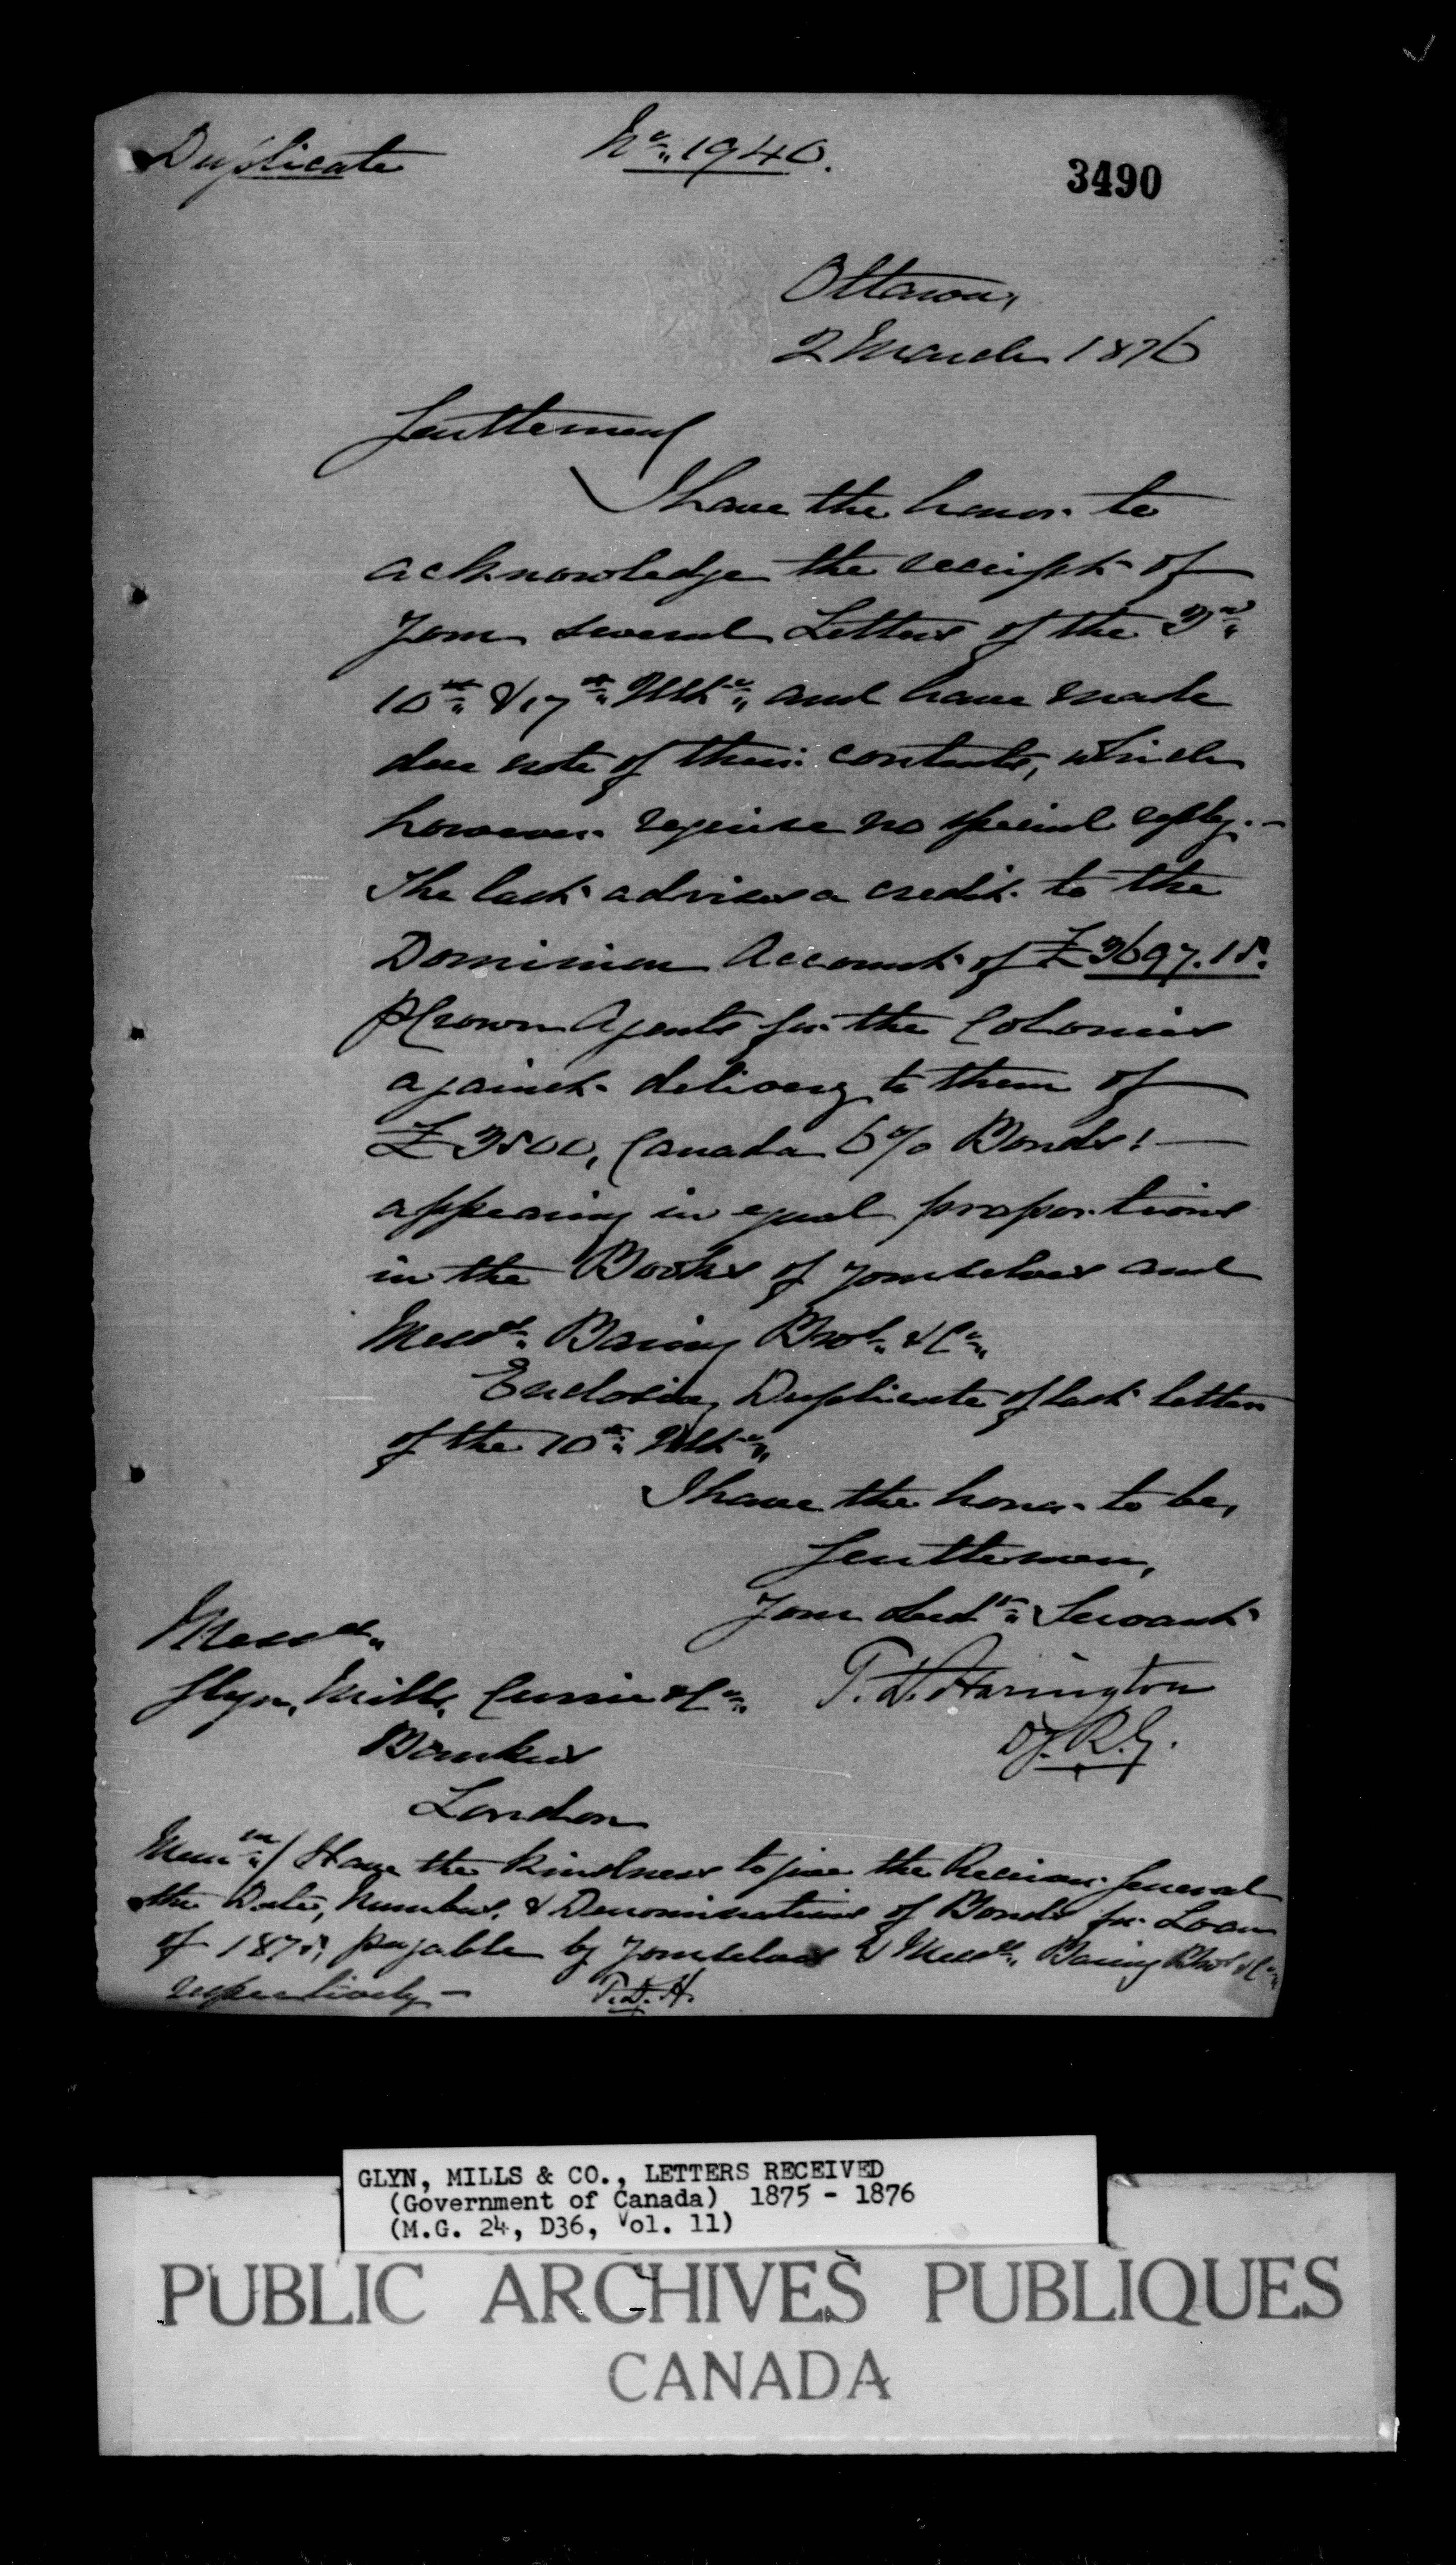 Duplicate
No. 1940.
3490
Ottawa,
2 March 1876
Gentlemen
I have the honor to
acknowledge the receipt of
your several Letters of the 3rd
10th & 17th Ulto, and have made
due note of their contents, which
however require no special reply.-
The last advises a credit to the
Dominion Account of £3697.15.
p Crown Agents for the Colonies
against delivery to them of
£3500, Canada 6% Bonds! —
appearing in equal proportions
in the Books of yourselves and
Messrs. Baring Bros. & Co.
Enclosing Duplicate of last letter
of the 10th Ulto,
I have the honor to be,
Gentlemen,
Your Obedt. Servant
T. D. Harington
Dy. R. G.
Messrs.
Glyn, Mills, Currie & Co.
Bankers
London
Memm/ Have the kindness to give the Receiver General
the Date, Numbers, & Denominations of Bonds for Loan
of 1875, payable by yourselves & Messrs. Baring Bros & Co
respectively - T.D.H.
GLYN, MILLS & CO., LETTERS RECEIVED
(Government of Canada) 1875 - 1876
(M.G. 24, D36, Vol. 11)
PUBLIC ARCHIVES PUBLIQUES
CANADA